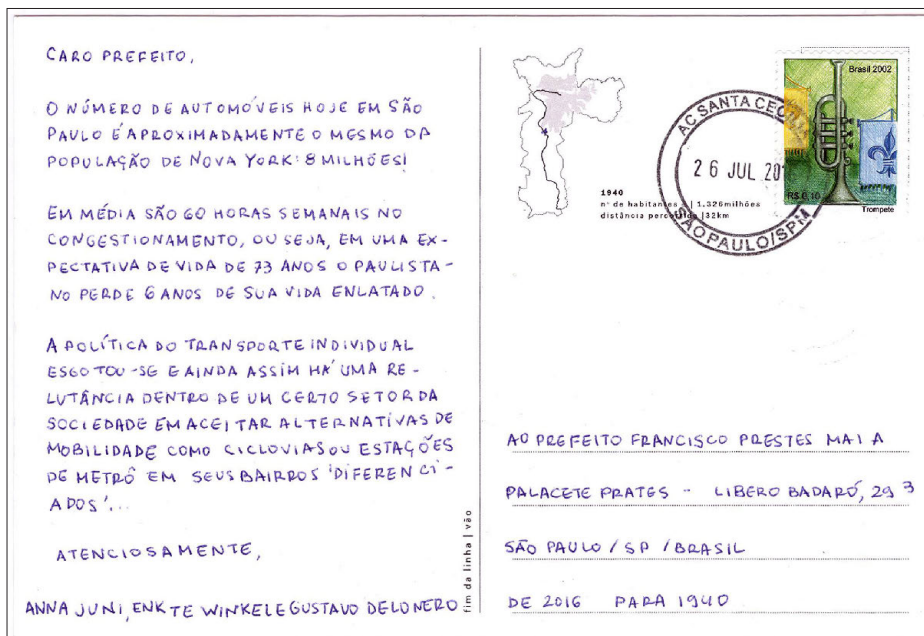 CARO PREFEITO,
O NÚMERO DE AUTOMÓVEIS HOJE EM SÃO
PAULO É APROXIMADAMENTE O MESMO DA
POPULAÇÃO DE NOVA YORK: 8 MILHÕES!
EM MÉDIA SÃO 60 HORAS SEMANAIS NO
CONGESTIONAMENTO, OU SEJA, EM UMA EX-
PECTATIVA DE VIDA DE 73 ANOS O PAULISTA-
NO PERDE 6 ANOS DE SUA VIDA ENLATADO.
A POLÍTICA DO TRANSPORTE INDIVIDUAL
ESGOTOU-SE E AINDA ASSIM HÁ UMA RE-
LUTÂNCIA DENTRO DE UM CERTO SETOR DA
SOCIEDADE EM ACEITAR ALTERNATIVAS DE
MOBILIDADE COMO CICLOVIAS OU ESTAÇÕES
DE METRÔ EM SEUS BAIRROS 'DIFERENCI-
ADOS'...
ATENCIOSAMENTE,
ANNA JUNI, ENK TE WINKEL E GUSTAVO DELONERO
fim da linha | vão
1940
nº de habitantes | 1.326milhões
distância percorrida |32km
AC SANTA CECÍLIA
26 JUL 20
SÃO PAULO/SPM
Brasil 2002
R$ 0,10
Trompete
AO PREFEITO FRANCISCO PRESTES MAIA
PALACETE PRATES - LIBERO BADARÓ, 293
SÃO PAULO / SP / BRASIL
DE 2016 PARA 1940